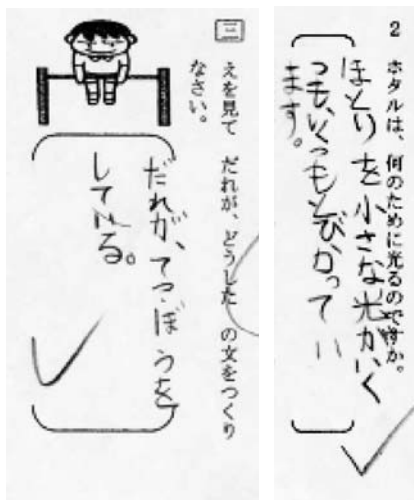 2 ホタルは、何のために光るのですか。
ほとりを小さな光がいく
つも、いくつもとびかってい
ます。
三 えを見て だれが、どうした の文をつくり
なさい。
だれが、てつぼうを
している。